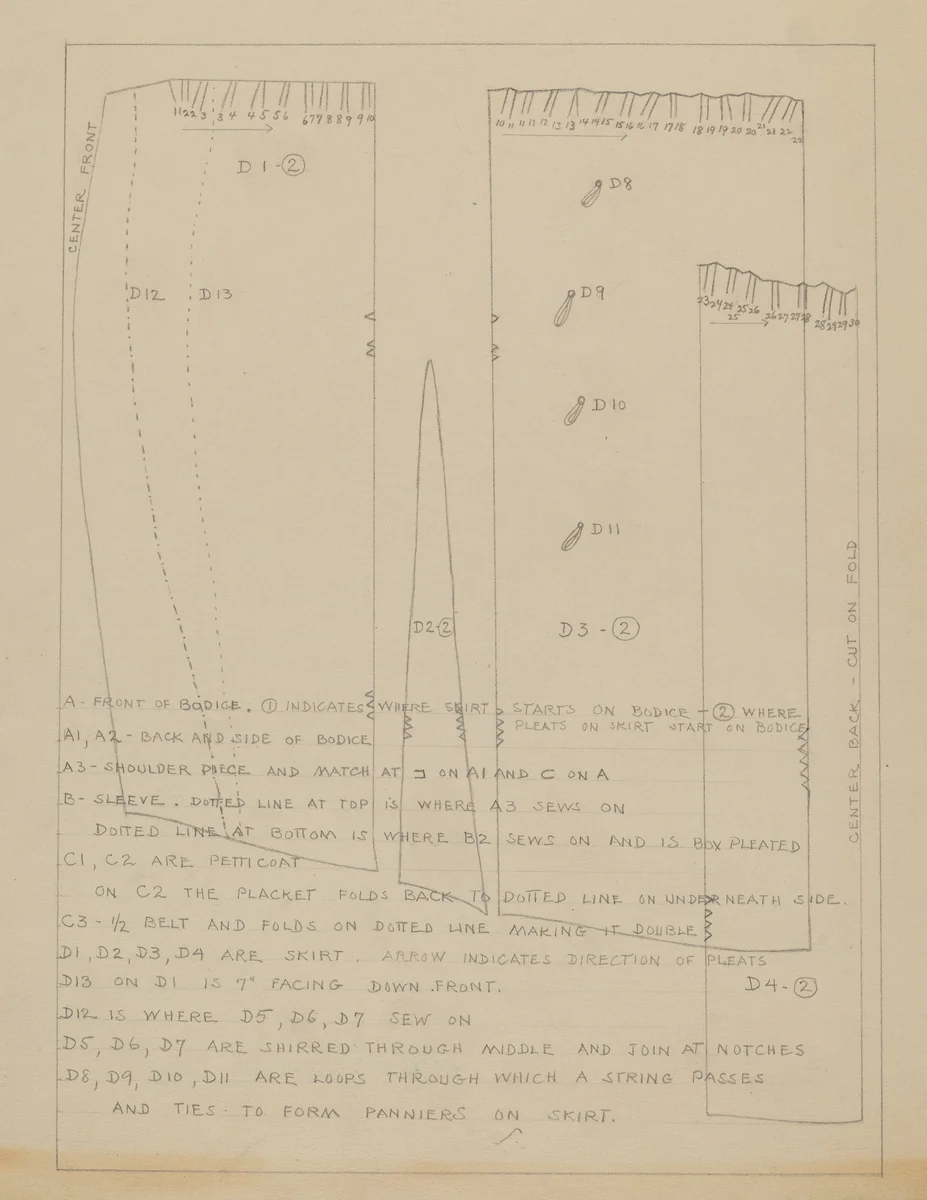 CENTER FRONT
1 1 2 2 3 3 4 4 5 5 6 6 7 7 8 8 9 9 10
D 1 - ②
D12
D13
10 11 11 12 12 13 13 14 14 15 15 16 16 17 17 18 18 19 19 20 20 21 21 22 22
D8
D9
D10
D11
23 24 24 25 25 26 26 27 27 28 28 29 29 30
D2-②
D3 - ②
CENTER BACK - CUT ON FOLD
A - FRONT OF BODICE. ① INDICATES WHERE SKIRT STARTS ON BODICE - ② WHERE
PLEATS ON SKIRT START ON BODICE
A1, A2 - BACK AND SIDE OF BODICE
A3 - SHOULDER PIECE AND MATCH AT ⊐ ON A1 AND ⊏ ON A
B - SLEEVE. DOTTED LINE AT TOP IS WHERE A3 SEWS ON
DOTTED LINE AT BOTTOM IS WHERE B2 SEWS ON AND IS BOX PLEATED
C1, C2 ARE PETTICOAT
ON C2 THE PLACKET FOLDS BACK TO DOTTED LINE ON UNDERNEATH SIDE.
C3 - 1/2 BELT AND FOLDS ON DOTTED LINE MAKING IT DOUBLE
D1, D2, D3, D4 ARE SKIRT. ARROW INDICATES DIRECTION OF PLEATS
D13 ON D1 IS 7" FACING DOWN FRONT.
D4-②
D12 IS WHERE D5, D6, D7 SEW ON
D5, D6, D7 ARE SHIRRED THROUGH MIDDLE AND JOIN AT NOTCHES
D8, D9, D10, D11 ARE LOOPS THROUGH WHICH A STRING PASSES
AND TIES TO FORM PANNIERS ON SKIRT.